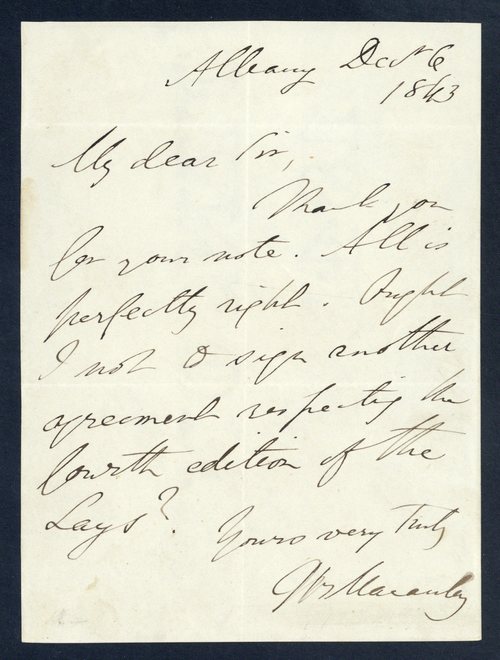 Albany Oct 6
1843
My dear Sir,
Thank you
for your note. All is
perfectly right. Ought
I not to sign another
agreement respecting the
fourth edition of the
Lays?
Yours very truly
TBMacaulay